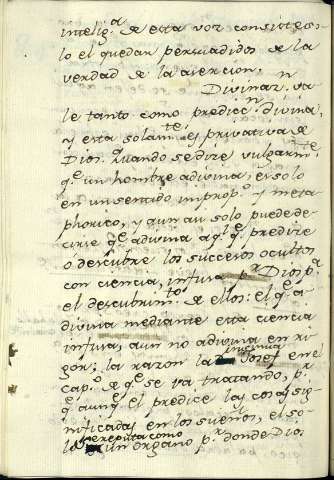 intelig.a de esta voz consiste so-
lo el quedar persuadidos de la
verdad de la asercion.
Divinar.n va
le tanto como predicc.n divina,
y esta solam.te es privativa de
Dios. Quando se dice vulgarm.te
q.e un hombre adivina, es solo
en un sentido improp.o y meta
phorico, y aun asi solo puede de-
cirse q.e adivina aq.l q.e predice
o descubre los sucesos ocultos
con ciencia, infusa p.r Dios p.a
el descubrim.to de ellos: el q.e a-
divina mediante esta ciencia
infusa, aun no adivina en ri-
gor; la razon la insinua Josef en el
cap.o de q.e se va tratando, p.r
q.e aunq.e el predice las cosas sig-
nificadas en los sueños, el so-
lo se reputa como un organo p.r donde Dios